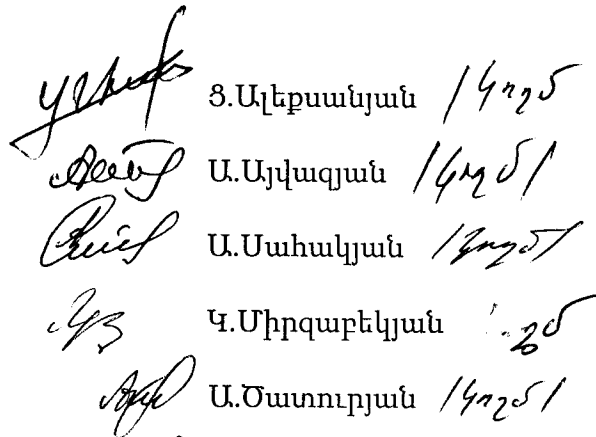 Ց.Ալեքսանյան /կողմ
Ա.Այվազյան /կողմ/
Ա.Սահակյան /կողմ/
Կ.Միրզաբեկյան
Ա.Ծատուրյան /կողմ/